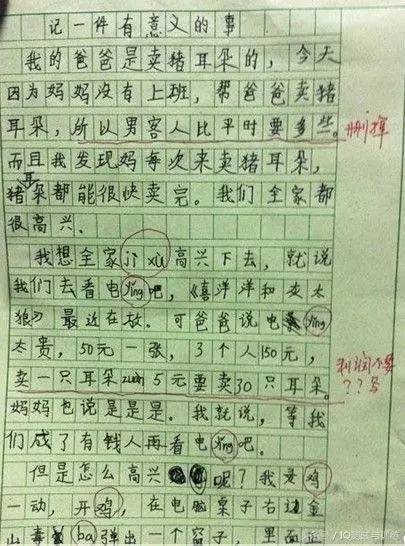 记一件有意义的事
我的爸爸是卖猪耳朵的,今天
因为妈妈没有上班,帮爸爸卖猪
耳朵,所以男客人比平时要多些。
删掉
而且我发现妈每次来卖猪耳朵,
猪耳朵都能很快卖完。我们全家都
很高兴.
我想全家jì xù高兴下去,就说
我们去看电yǐng吧,《喜洋洋和灰太
狼》最近在放.可爸爸说电yǐng
太贵,50元一张,3个人150元,
利润不算
??号
卖一只耳朵zuàn5元要卖30只耳朵。
妈妈也说是是是.我就说,等我
们成了有钱人再看电yǐng吧.
但是怎么高兴呢?我灵鸡
一动,开鸡,在电脑桌子右边金
山毒ba弹出一个窗子,里面
头条号/IQ测试与训练